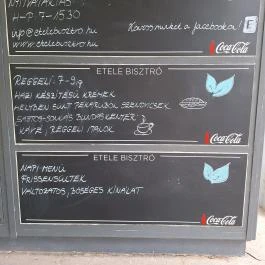 NYITVATARTÁS:
H-P: 7-15:30
info@etelebisztro.hu
www.etelebisztro.hu
Kövess minket a facebookon! f
Coca-Cola
ETELE BISZTRÓ
REGGELI: 7-9-ig
HÁZI KÉSZÍTÉSŰ KRÉMEK
HELYBEN SÜLT PÉKÁRUBÓL SZENDVICSEK
SAJTOS-SONKÁS BUNDÁSKENYÉR
KÁVÉ, REGGELI ITALOK
Coca-Cola
ETELE BISZTRÓ
NAPI MENÜ
FRISSENSÜLTEK
VÁLTOZATOS, BŐSÉGES KÍNÁLAT
Coca-Cola